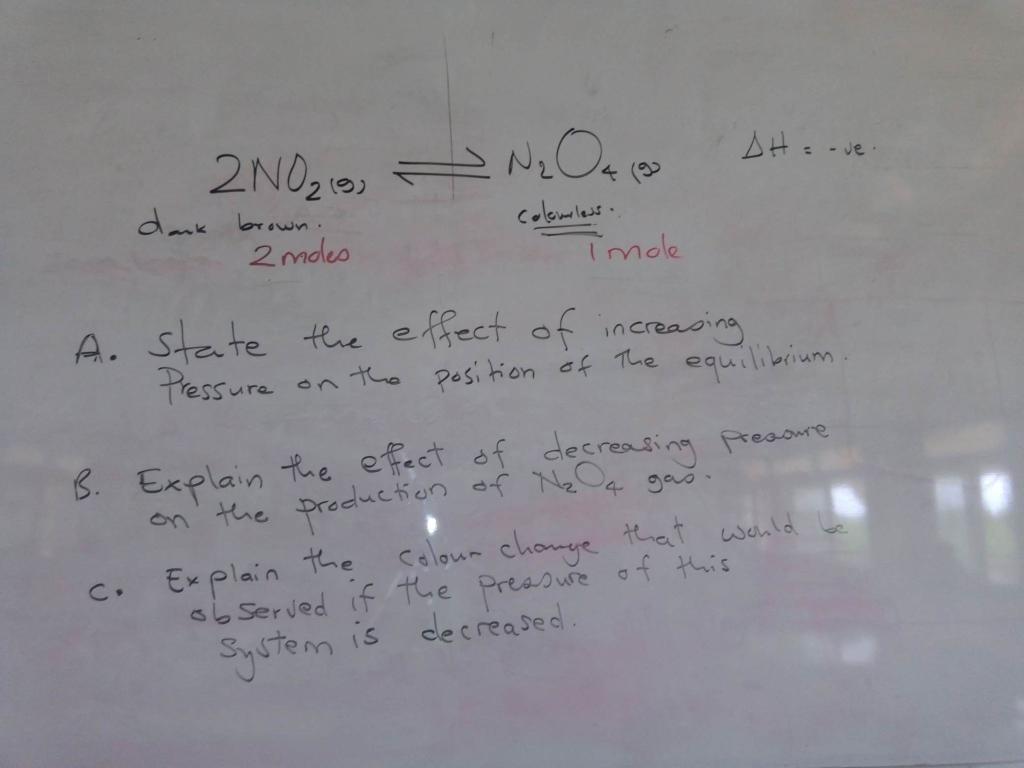 2NO₂(g) ⇌ N₂O₄(g) ΔH = -ve.
dark brown. colourless.
2 moles 1 mole
A. State the effect of increasing
Pressure on the position of the equilibrium.
B. Explain the effect of decreasing pressure
on the production of N₂O₄ gas.
C. Explain the colour change that would be
observed if the pressure of this
system is decreased.